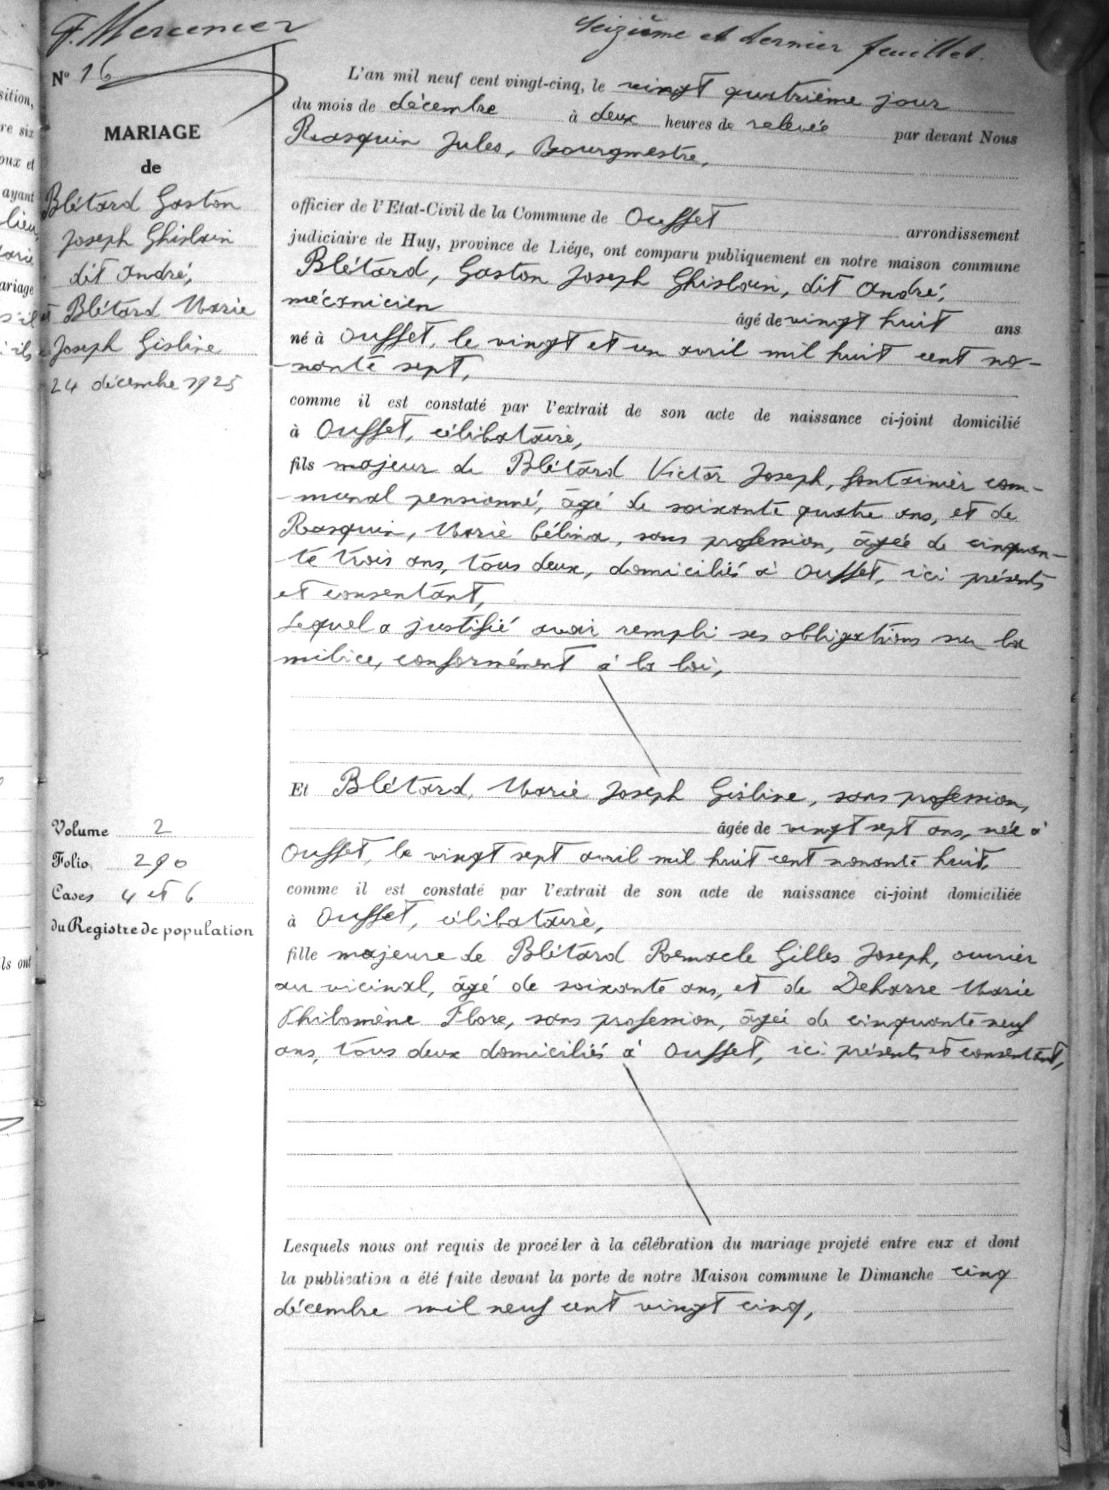 F. Mercenier
Seizième et dernier feuillet.
N° 16
MARIAGE
de
Blétard Gaston
Joseph Ghislain
dit André,
et Blétard Marie
Joseph Gisline
24 décembre 1925
Volume 2
Folio 290
Cases 4 et 6
du Registre de population
L'an mil neuf cent vingt-cinq, le vingt quatrième jour
du mois de décembre à deux heures de relevée par devant Nous
Rasquin Jules, Bourgmestre,
officier de l'Etat-Civil de la Commune de Ouffet arrondissement
judiciaire de Huy, province de Liége, ont comparu publiquement en notre maison commune
Blétard, Gaston Joseph Ghislain, dit André,
mécanicien âgé de vingt huit ans
né à Ouffet, le vingt et un avril mil huit cent no-
nante sept,
comme il est constaté par l'extrait de son acte de naissance ci-joint domicilié
à Ouffet, célibataire,
fils majeur de Blétard Victor Joseph, fontainier com-
-munal pensionné, âgé de soixante quatre ans, et de
Rasquin, Marie Célina, sans profession, âgée de cinquan-
-te trois ans, tous deux, domiciliés à Ouffet, ici présents
et consentant,
Lequel a justifié avoir rempli ses obligations sur la
milice, conformément à la loi,
Et Blétard, Marie Joseph Gisline, sans profession,
âgée de vingt sept ans, née à
Ouffet, le vingt sept avril mil huit cent nonante huit,
comme il est constaté par l'extrait de son acte de naissance ci-joint domiciliée
à Ouffet, célibataire,
fille majeure de Blétard Remacle Gilles Joseph, ouvrier
au vicinal, âgé de soixante ans, et de Deharre Marie
Philomène Flore, sans profession, âgée de cinquante neuf
ans, tous deux domiciliés à Ouffet, ici présents et consentant,
Lesquels nous ont requis de procéder à la célébration du mariage projeté entre eux et dont
la publication a été faite devant la porte de notre Maison commune le Dimanche cinq
décembre mil neuf cent vingt cinq,